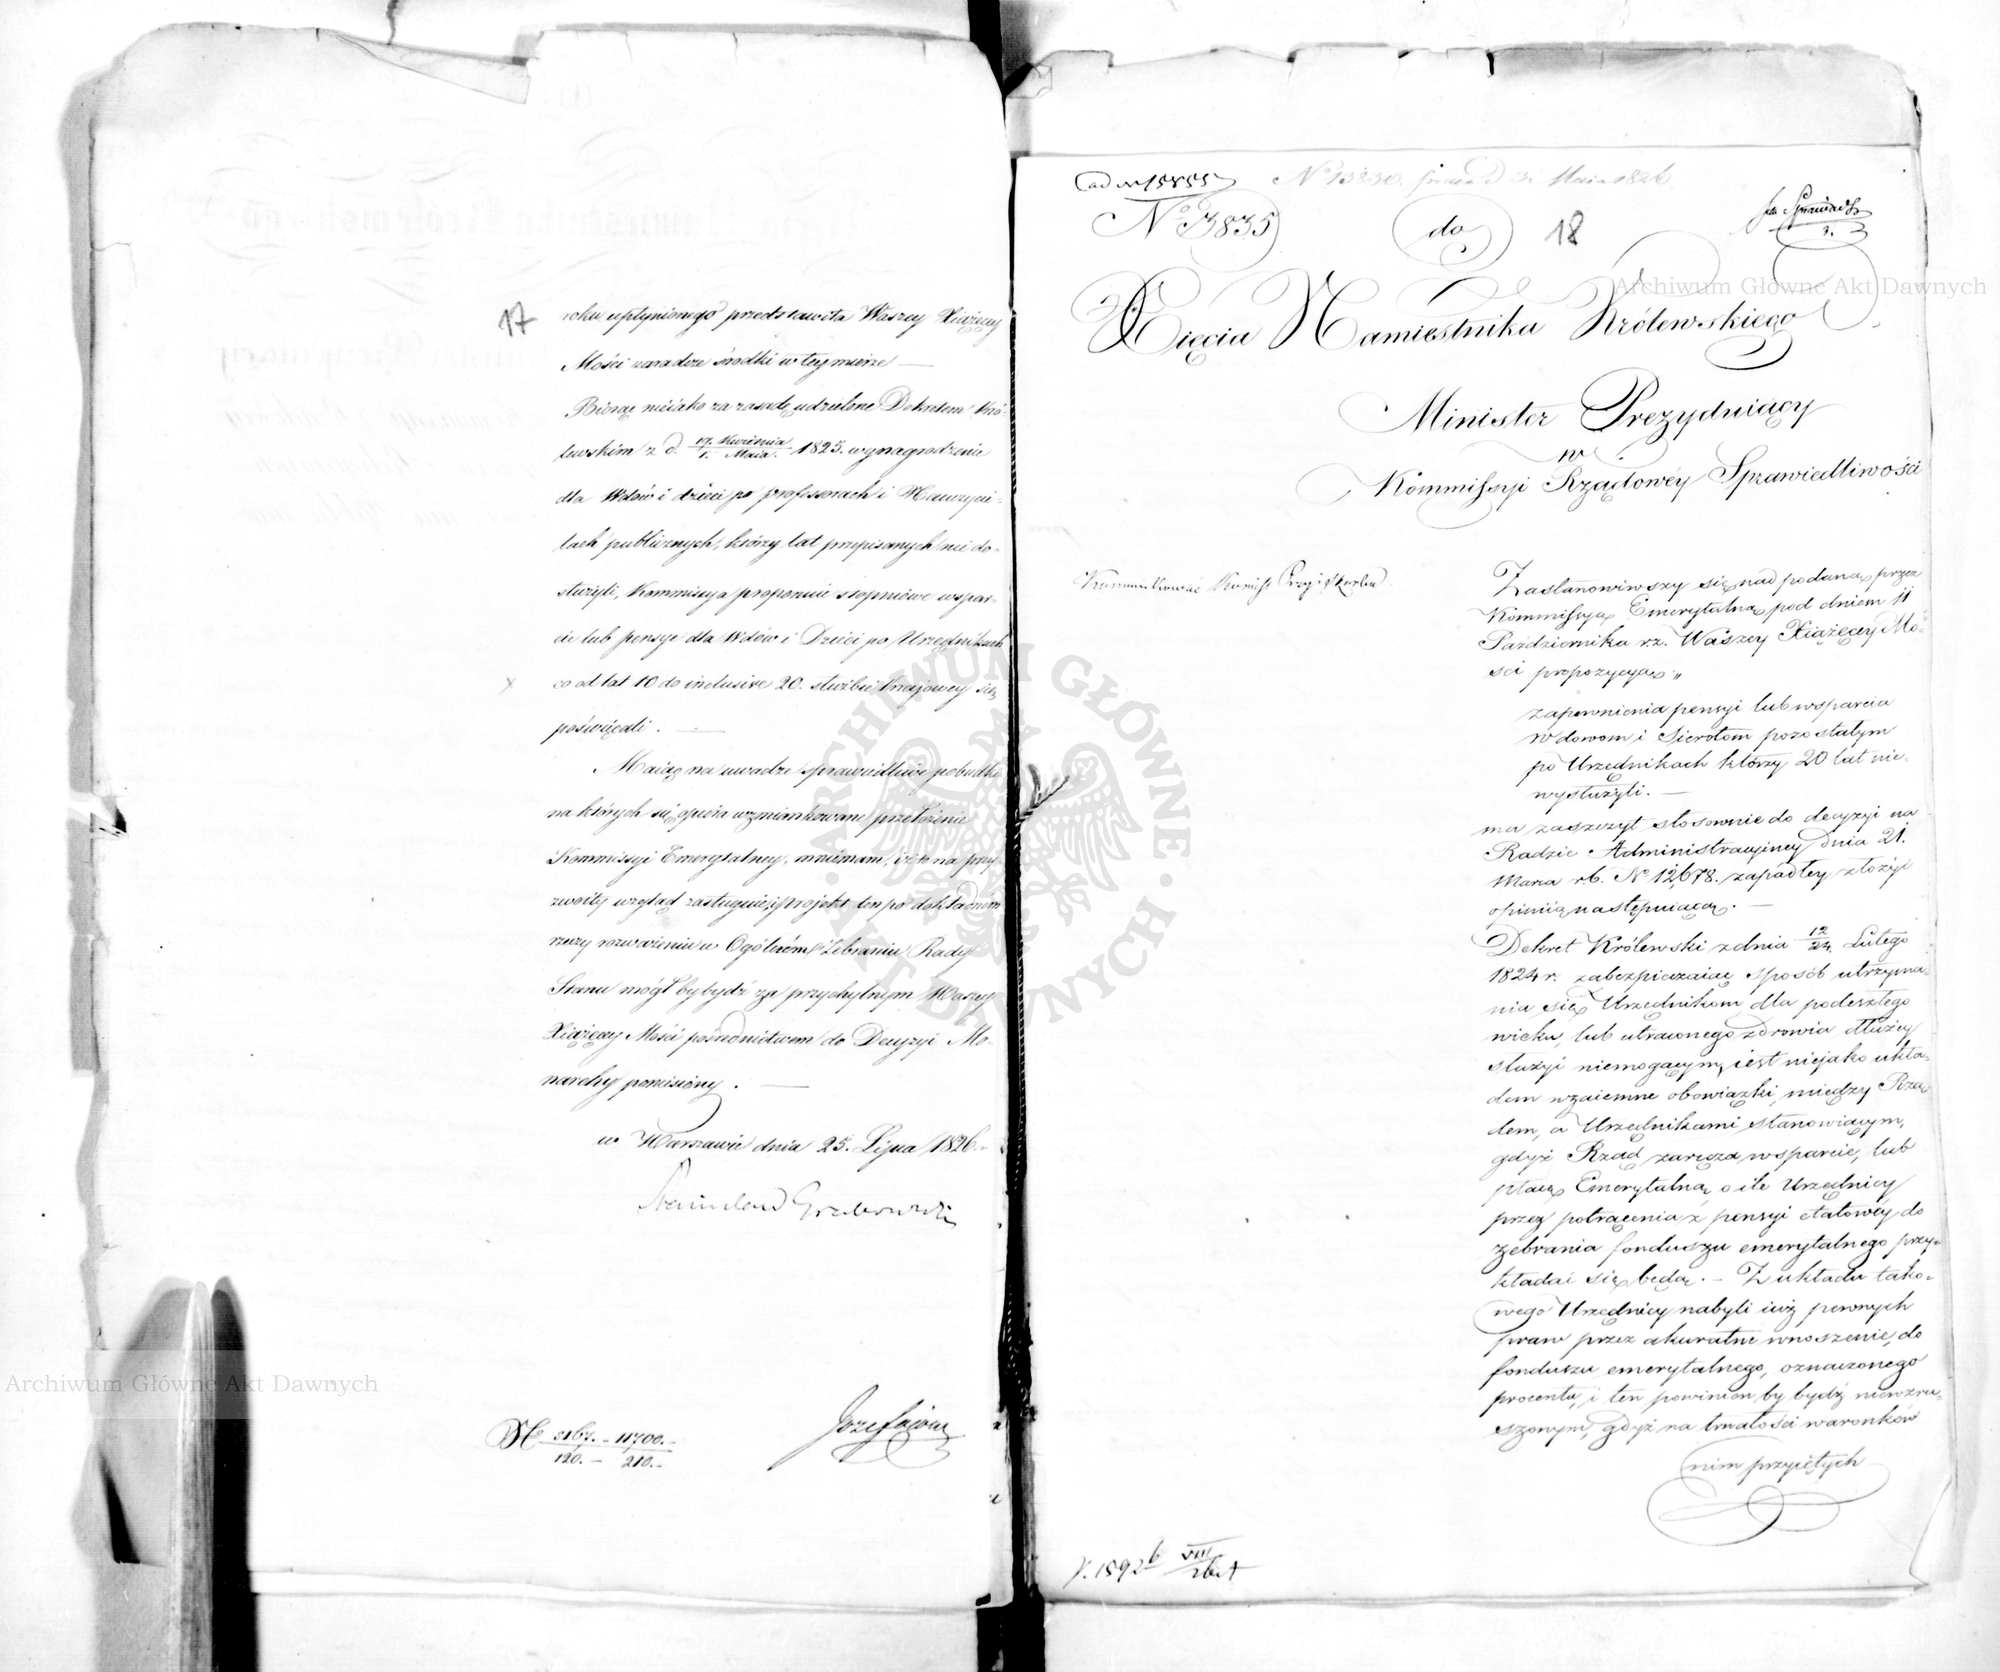 17
roku upłynionego przedstawiła Waszey Xiążęcey
Mości zaradcze środki w tey mierze —
Biorąc nieiako za zasadę udzielone Dekretem Kró-
lewskim z d. 19. Kwietnia / 1. Maia. 1825. wynagrodzenie
dla Wdów i dzieci po professorach i Nauczycie-
lach publicznych, którzy lat przepisanych nie do-
służyli, Kommissya proponuie stopniowe wspar-
cie lub pensye dla Wdów i Dzieci po Urzędnikach
co od lat 10 do inclusive 20. służbie kraiowey się
poświęcali. —
Maiąc na uwadze sprawiedliwe pobudki
na których się opiera wzmiankowane przełożenie
Kommissyi Emerytalney, mniemam, iż to na przy-
zwoity wzgląd zasługuie, i projekt ten po dokładnem
rzeczy rozważeniu w Ogólném Zebraniu Rady
Stanu mógł by bydź za przychylnym Waszey
Xiążęcey Mości pośrednictwem do Decyzyi Mo-
narchy poniesiony. —
w Warszawie dnia 25. Lipca 1826.
Stanisław Grabowski
№ 3167. — 11700. —
120. — 210. —
ad № 15855
№ 13830. 3i Maia 1826
№ 3835
do
18
Xięcia Namiestnika Królewskiego
Minister Prezyduiący
w
Kommissyi Rządowéy Sprawiedliwości
Zastanowiwszy się nad podaną przez
Kommissyą Emerytalną pod dniem 11
Października r. z. Waszey Xiążęcey Mo-
ści propozycyą „
zapewnienia pensyi lub wsparcia
wdowom i Sierotom pozostałym
po Urzędnikach którzy 20 lat nie-
wysłużyli. —
ma zaszczyt stosownie do decyzyi na
Radzie Administracyiney dnia 21.
Marca r. b. № 12,678. zapadłey złożyć
opinią następuiącą. —
Dekret Królewski z dnia 12/24 Lutego
1824 r. zabezpieczaiąc sposób utrzyma-
nia się Urzędnikom, dla podeszłego
wieku, lub utraconego zdrowia dłużey
służyć niemogącym, iest niejako ukła-
dem wzaiemne obowiązki, między Rzą-
dem, a Urzędnikami stanowiącym,
gdyż Rząd zaręcza wsparcie, lub
płacę Emerytalną, o ile Urzędnicy
przez potrącenia z pensyi etatowey do
zebrania funduszu emerytalnego przy-
kładać się będą. — Z układu tako-
wego Urzędnicy nabyli iuż pewnych
praw przez akuratne wnoszenie, do
funduszu emerytalnego, oznaczonego
procentu, i ten powinien by bydź niewzru-
szonym, gdyż na trwałości warunków
nim przyiętych
Archiwum Główne Akt Dawnych
Archiwum Główne Akt Dawnych
ARCHIWUM GŁÓWNE AKT DAWNYCH